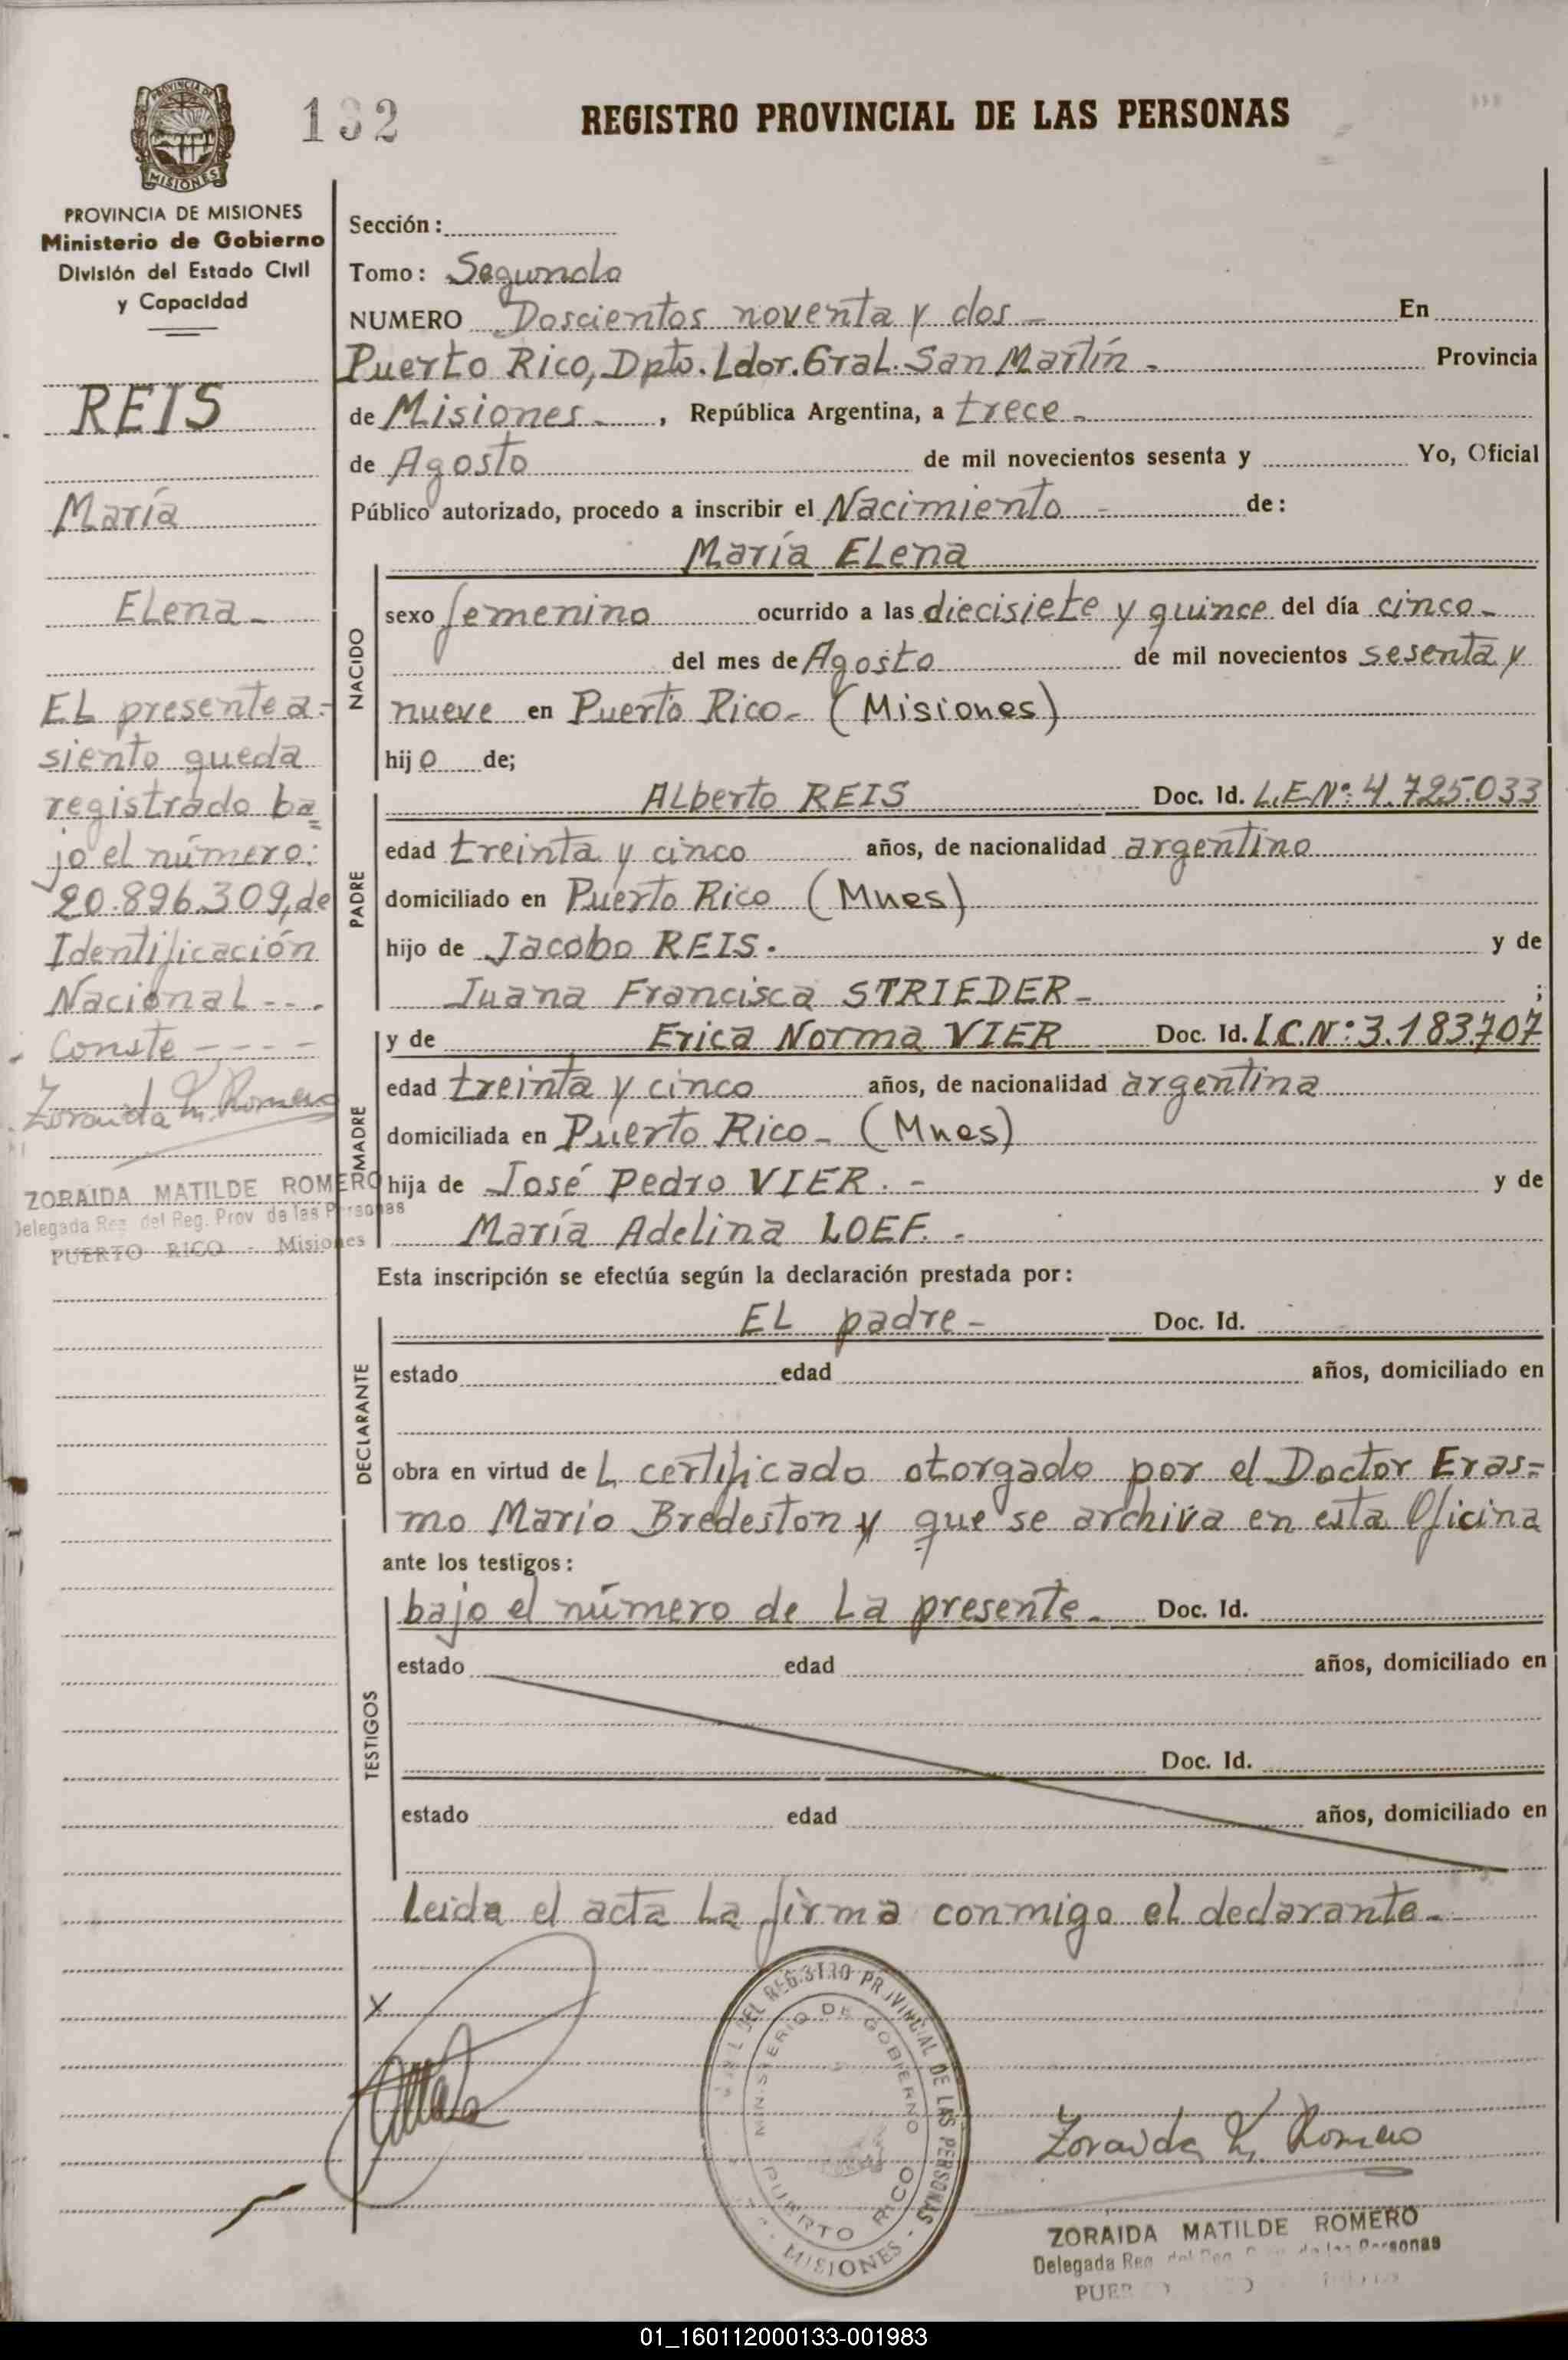 132
REGISTRO PROVINCIAL DE LAS PERSONAS
PROVINCIA DE
MISIONES
PROVINCIA DE MISIONES
Ministerio de Gobierno
División del Estado Civil
y Capacidad
REIS
María
Elena -
El presente a-
siento queda
registrado ba
jo el número:
20.896.309, de
Identificación
Nacional - - .
Conste - - - -
Zoraida M. Romero
ZORAIDA MATILDE ROMERO
Delegada Reg. del Reg. Prov. de las Personas
PUERTO RICO - Misiones
Sección:
Tomo: Segundo
NUMERO Doscientos noventa y dos - En
Puerto Rico, Dpto. Ldor. Gral. San Martín - Provincia
de Misiones - , República Argentina, a trece -
de Agosto de mil novecientos sesenta y Yo, Oficial
Público autorizado, procedo a inscribir el Nacimiento - de:
María Elena
NACIDO
sexo femenino ocurrido a las diecisiete y quince del día cinco -
del mes de Agosto de mil novecientos sesenta y
nueve en Puerto Rico - (Misiones)
hijo de;
PADRE
Alberto REIS Doc. Id. L.E.Nº: 4.725.033
edad treinta y cinco años, de nacionalidad argentino
domiciliado en Puerto Rico (Mnes)
hijo de Jacobo REIS. y de
Juana Francisca STRIEDER - ;
MADRE
y de Erica Norma VIER Doc. Id. L.C.Nº: 3.183.707
edad treinta y cinco años, de nacionalidad argentina
domiciliada en Puerto Rico - (Mnes)
hija de José Pedro VIER. - y de
María Adelina LOEF. -
Esta inscripción se efectúa según la declaración prestada por:
DECLARANTE
El padre - Doc. Id.
estado edad años, domiciliado en
obra en virtud de l certificado otorgado por el Doctor Eras=
mo Mario Bredeston y que se archiva en esta Oficina
ante los testigos:
TESTIGOS
bajo el número de la presente - Doc. Id.
estado edad años, domiciliado en
Doc. Id.
estado edad años, domiciliado en
Leida el acta la firma conmigo el declarante -
X
DEL REGISTRO PROVINCIAL DE LAS PERSONAS
MINISTERIO DE GOBIERNO
PUERTO RICO
- MISIONES -
Zoraida M. Romero
ZORAIDA MATILDE ROMERO
Delegada Reg. de las Personas
01_160112000133-001983